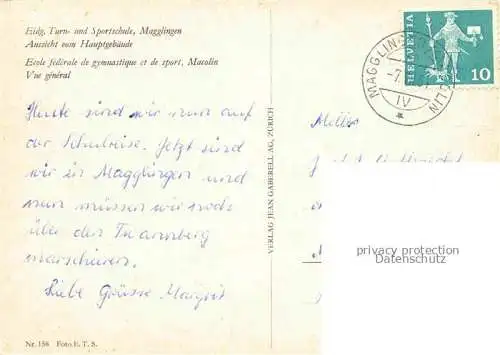 Eidg. Turn- und Sportschule, Magglingen
Aussicht vom Hauptgebäude
Ecole fédérale de gymnastique et de sport, Macolin
Vue général
Heute sind wir nun auf
der Schulreise. Jetzt sind
wir in Magglingen und
nun müssen wir noch
über den Twannberg
marschieren.
Liebe Grüsse Margrit
Nr. 156 Foto E. T. S.
VERLAG JEAN GABERELL AG, ZÜRICH
HELVETIA
10
MAGGLINGEN
IV
privacy protection
Datenschutz